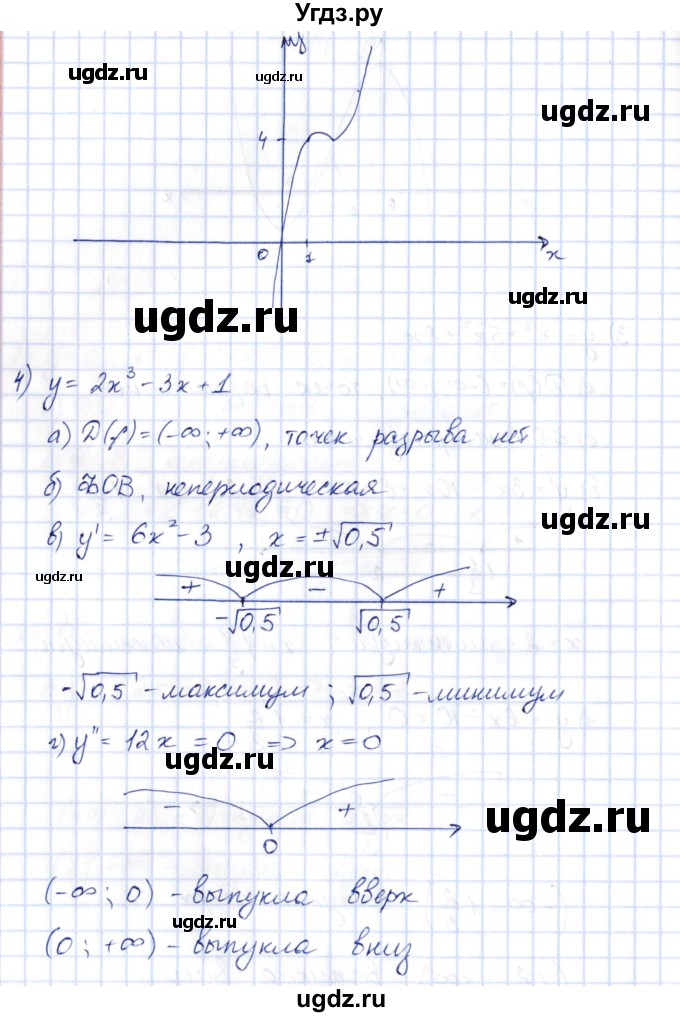 Угдз.ру
ugdz.ru
ugdz.ru
y
ugdz.ru
4
0
1
x
ugdz.ru
ugdz.ru
4) y = 2x³ - 3x + 1
а) D(f) = (-∞; +∞), точек разрыва нет
б) ФОВ, непериодическая
ugdz.ru
в) y' = 6x² - 3 , x = ±√0,5
ugdz.ru
ugdz.ru
+ - +
-√0,5 √0,5
-√0,5 - максимум ; √0,5 - минимум
г) y'' = 12x = 0 => x = 0
ugdz.ru
- +
ugdz.ru
0
(-∞; 0) - выпукла вверх
ugdz.ru
(0; +∞) - выпукла вниз
ugdz.ru
ugdz.ru